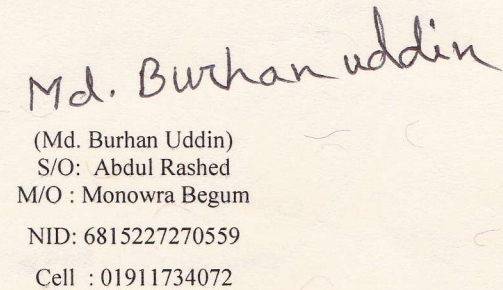 Md. Burhan uddin
(Md. Burhan Uddin)
S/O: Abdul Rashed
M/O : Monowra Begum
NID: 6815227270559
Cell : 01911734072